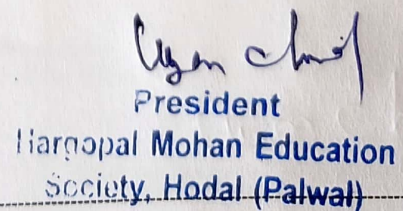 President
Hargopal Mohan Education
Society, Hodal (Palwal)